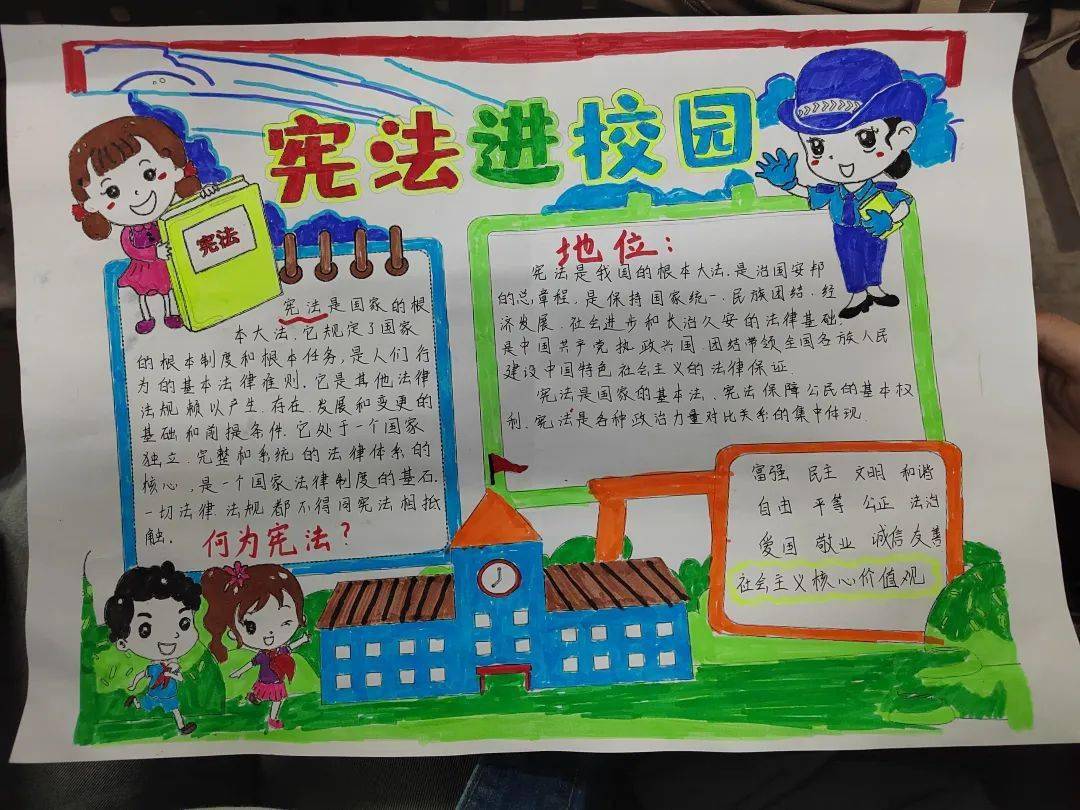 宪法进校园
宪法
宪法是国家的根
本大法，它规定了国家
的根本制度和根本任务，是人们行
为的基本法律准则．它是其他法律
法规赖以产生．存在．发展和变更的
基础和前提条件．它处于一个国家
独立．完整和系统的法律体系的
核心，是一个国家法律制度的基石．
一切法律法规都不得同宪法相抵
触．
何为宪法？
地位：
宪法是我国的根本大法．是治国安邦
的总章程，是保持国家统一．民族团结．经
济发展．社会进步和长治久安的法律基础．
是中国共产党执政兴国．团结带领全国各族人民
建设中国特色社会主义的法律保证．
宪法是国家的基本法．宪法保障公民的基本权
利．宪法是各种政治力量对比关系的集中体现．
富强 民主 文明 和谐
自由 平等 公正 法治
爱国 敬业 诚信 友善
社会主义核心价值观